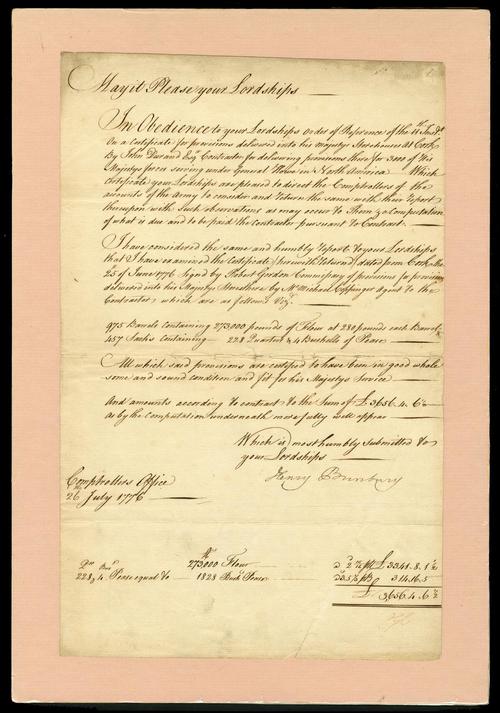 May it Please your Lordships
In Obedience to your Lordships Order of Reference of the 11th Inst
On a Certificate for provisions delivered into his Majestys Storehouses at Cork
By John Durand Esq Contractor for delivering provisions there for 3000 of His
Majestys forces serving under General Howe in North America Which
Certificate your Lordships are pleased to direct the Comptrollers of the
accounts of the Army to consider and Return the same with their Report
thereupon with such observations as may occur to Them & a Computation
of what is due and to be paid the Contractor pursuant to Contract.
I have considered the same and humbly Report to your Lordships
that I have examined the Certificate (herewith Returned) dated from Cork the
25 of June 1776 Signed by Robert Gordon Commissary of provisions for provisions
delivered into his Majestys Storehouses by Mr Michael Agent to the
Contractor; which are as follows Vizt
975 Barrels containing 273,000 pounds of Flour at 280 pounds each Barrel
457 Sacks containing 228 Quarters & 4 Bushells of Pease
All which said provisions are certified to have been in good whole
some and sound condition and fit for his Majestys Service
And amounts according to contract to the Sum of £3656.4.6½
As by the Computation underneath more fully will appear
Which is most humbly Submitted to
your Lordships
Henry Bunbury
Comptrollers Office
26th July 1776
273000 Flour £3341.8.1½
228,4 Pease equal to 1828 Bush Pease 314.16.5
£3,656.4.6½